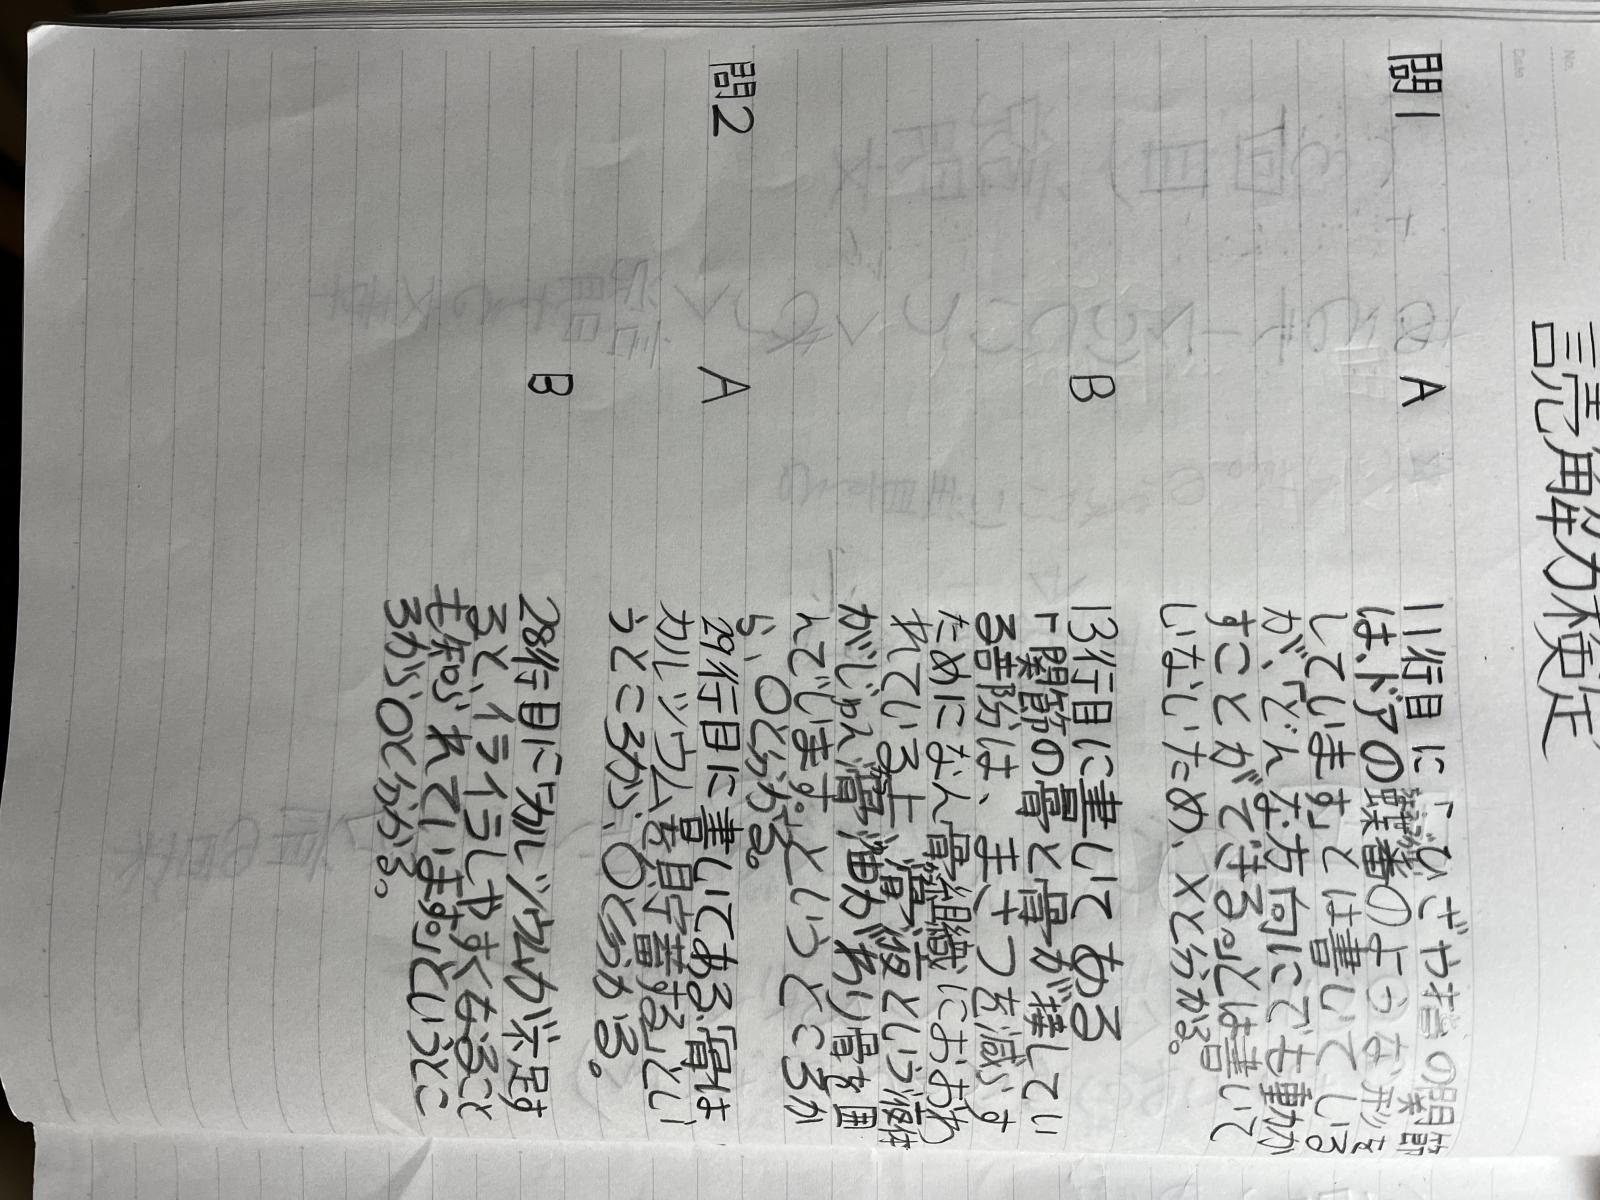 No.
Date
読解力検定
問1
A
11行目に「ひざや指の関節
は、ドアの蝶番のような形を
しています」とは書いている
が、「どんな方向にでも動か
すことができる」とは書いて
いないため、×と分かる。
B
13行目に書いてある
「関節の骨と骨が接してい
る部分は、まさつを減らす
ためになん骨組織におおわ
れている上、滑液という液体
がじゅん滑油がわり骨を囲
んでいます。」というところか
ら、○と分かる。
問2
A
29行目に書いてある「骨は
カルシウムを貯蓄する」とい
うところから、○と分かる。
B
28行目に「カルシウムが不足す
ると、イライラしやすくなること
も知られています」というとこ
ろから○と分かる。